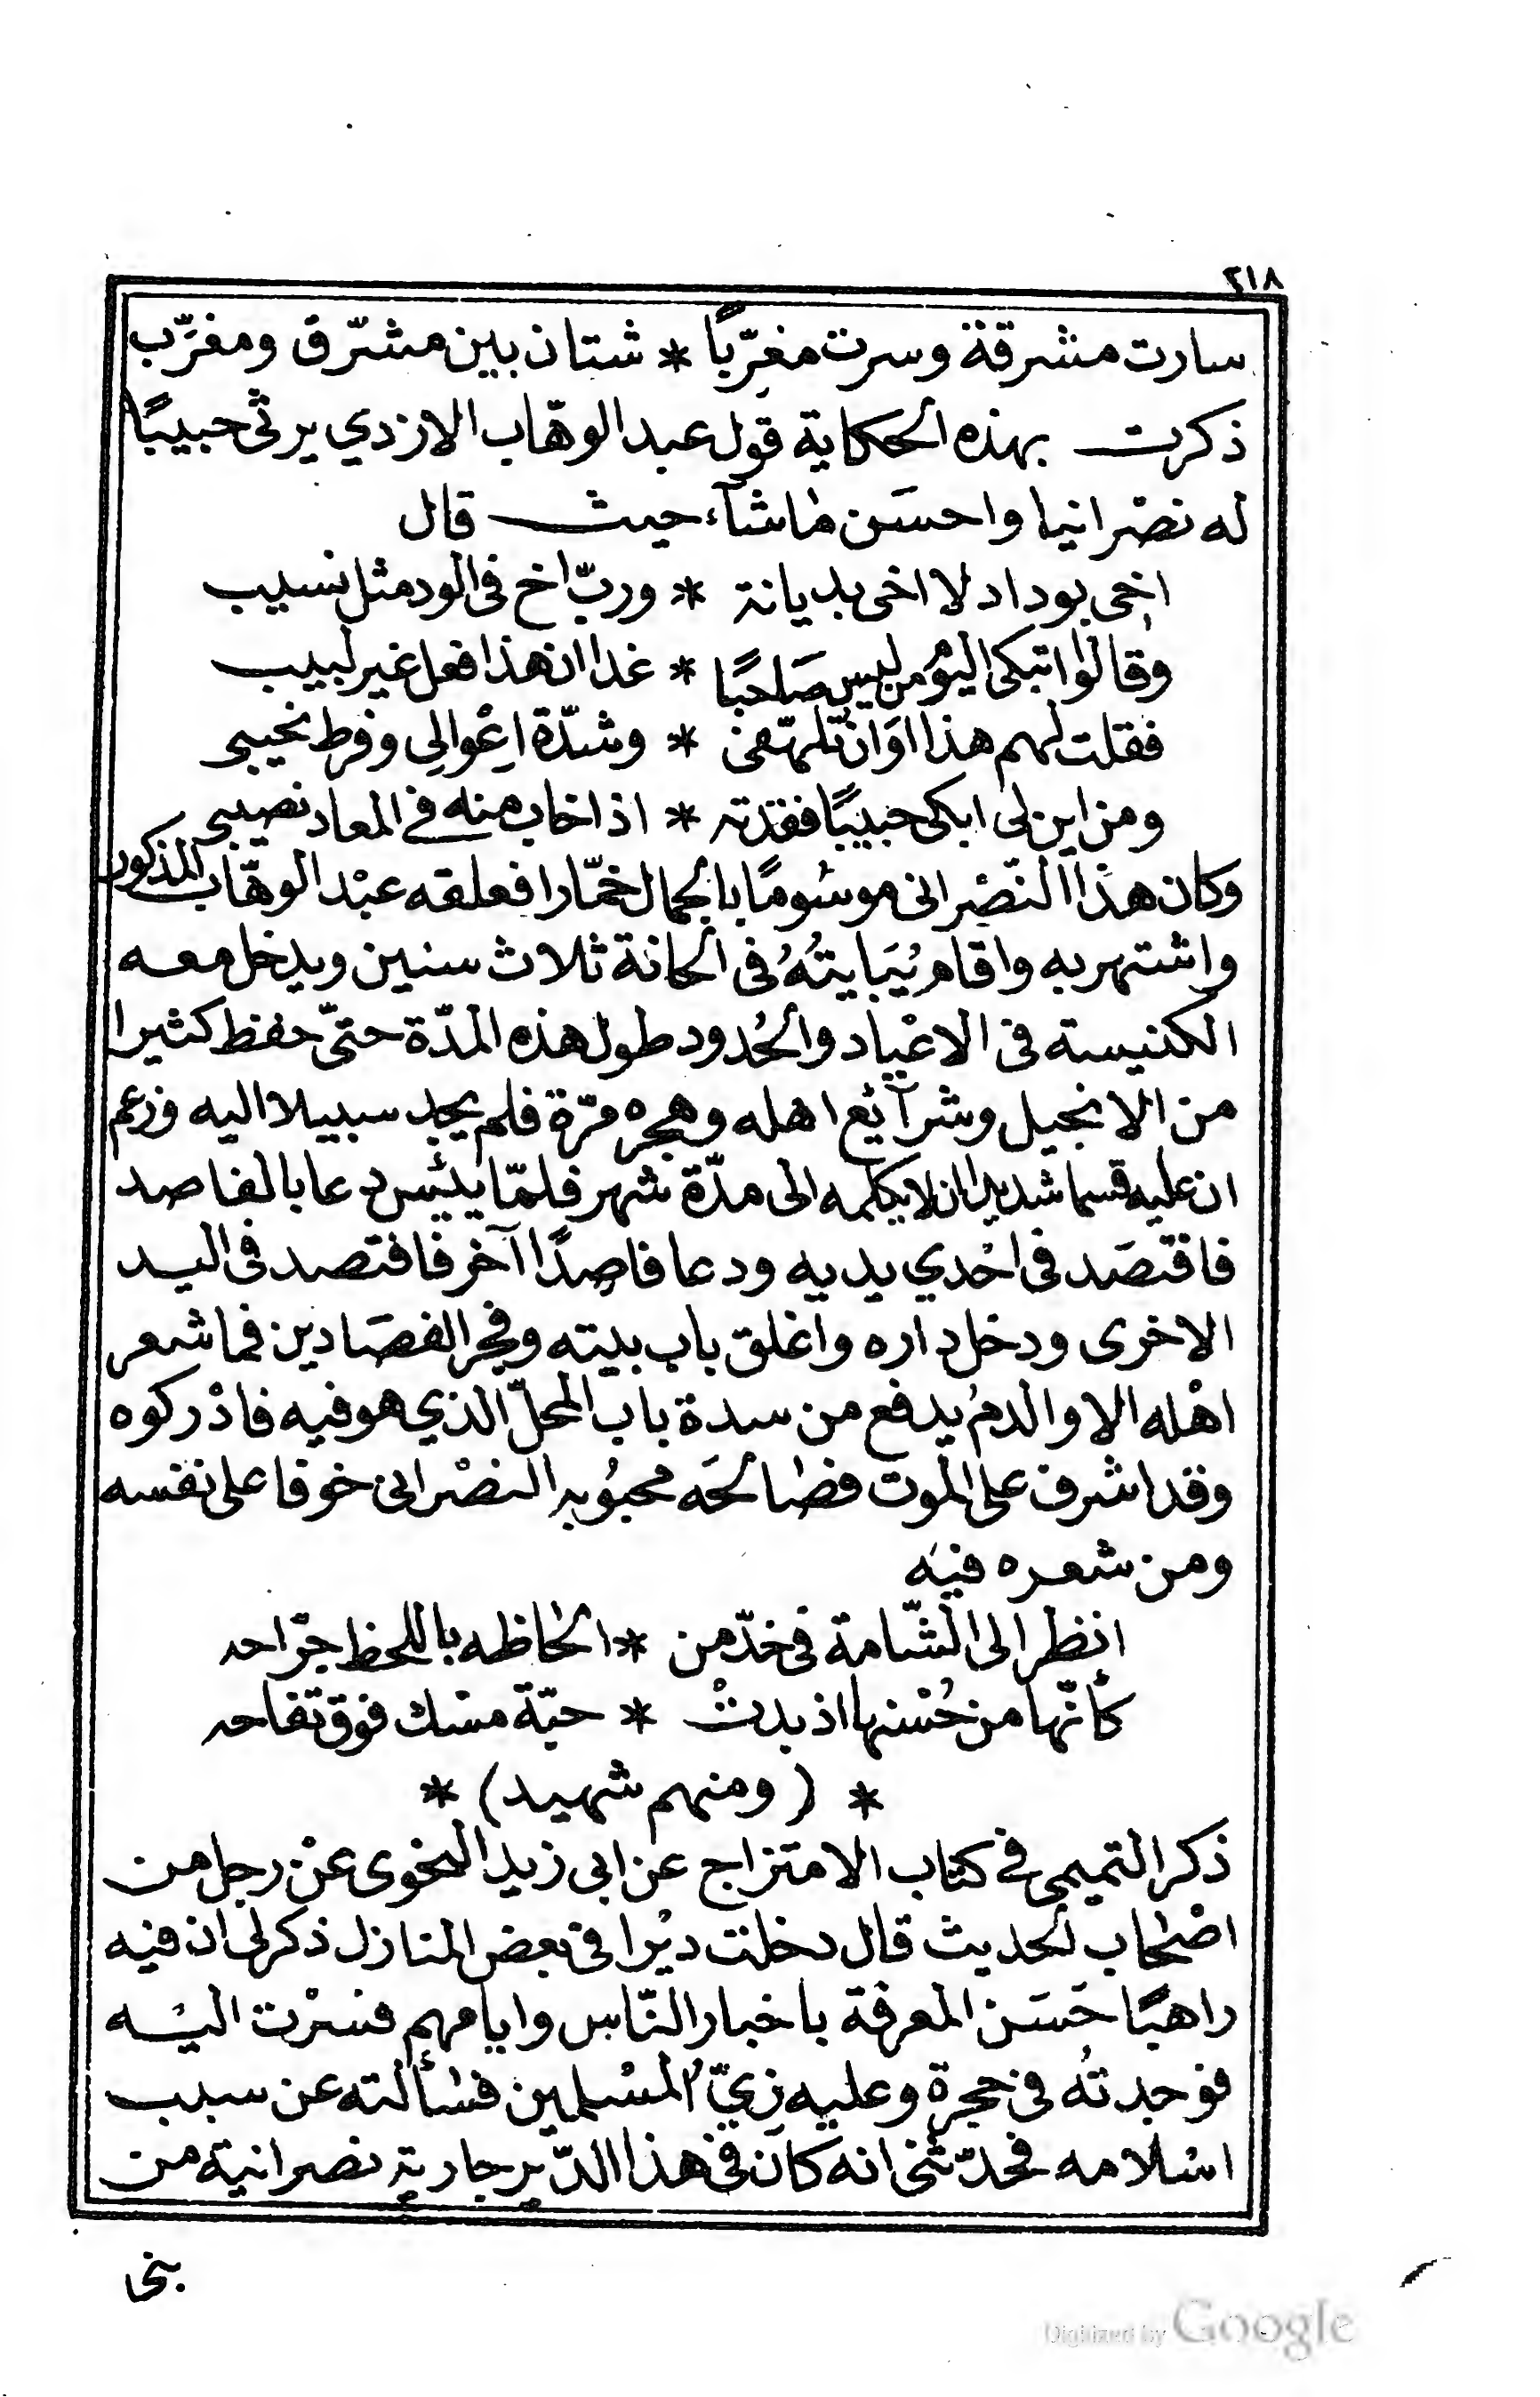 ٢١٨
سارت مشرقة وسرت مغرّبًا * شتان بين مشرّق ومغرّب
ذكرت بهذه الحكاية قول عبد الوهّاب الازدي يرثى حبيبًا
له نصْرانيا واحسَن ماشآء حيث قال
اخى بوداد لا اخى بديانة * وربّ اخ فى الود مثل نسيب
وقالوا اتبكى اليوْم من ليس صَاحبًا * غدا ان هذا فعل غير لبيب
فقلت لهم هذا اوَان تلهّفى * وشدّة اعْوالي وفرط نحيبى
ومن اين لى ابكى حبيبًا فقدته * اذا خاب منه في المعاد نصيبى
وكان هذا النّصْرانى موسُومًا بالجمال خمّارا فعلقه عبْد الوهّاب المذكور
واشتهر به واقام يُبَايتُهُ فى الحانة ثلاث سنين ويدخل معه
الكنيسة فى الاعْياد والحُدود طول هذه المدّة حتىّ حفظ كثيرا
من الانجيل وشرآئع اهله وهجره مرّة فلم يجد سبيلا اليه وزعم
ان عليه قسما شديدا ان لا يكلمه الى مدّة شهر فلمّا يئس دعا بالفاصد
فافتصَد فى احْدي يديه ودعا فاصِدًا آخر فافتصد فى اليد
الاخرى ودخل داره واغلق باب بيته وفجر الفصَادين فما شعر
اهْله الا والدمُ يدفع من سدة باب المحلّ الذي هو فيه فادْركوه
وقد اشرف على الموت فصالحَه محبوُبه النصْرانى خوفا على نفسه
ومن شعره فيه
انظر الى الشّامة فى خدّ من * الحاظه باللحظ جرّاحه
كأنّها من حُسْنها اذ بدتْ * حبّة مسْك فوق تفاحه
* (ومنهم شهيد) *
ذكر التميمى في كتاب الامتزاج عن ابى زيد النحوى عنْ رجل من
اصْحاب الحديث قال دخلت ديْرا فى بعض المنازل ذكر لى ان فيه
راهبًا حَسَن المعرفة باخبار النّاس وايامهم فسرْت اليْه
فوجدتُه فى حجرة وعليه زيّ المسْلمين فسْألته عن سبب
اسْلامه فحدّثنى انه كان فى هذا الدّير جارية نصرانية من
بنى
Digitized by Google